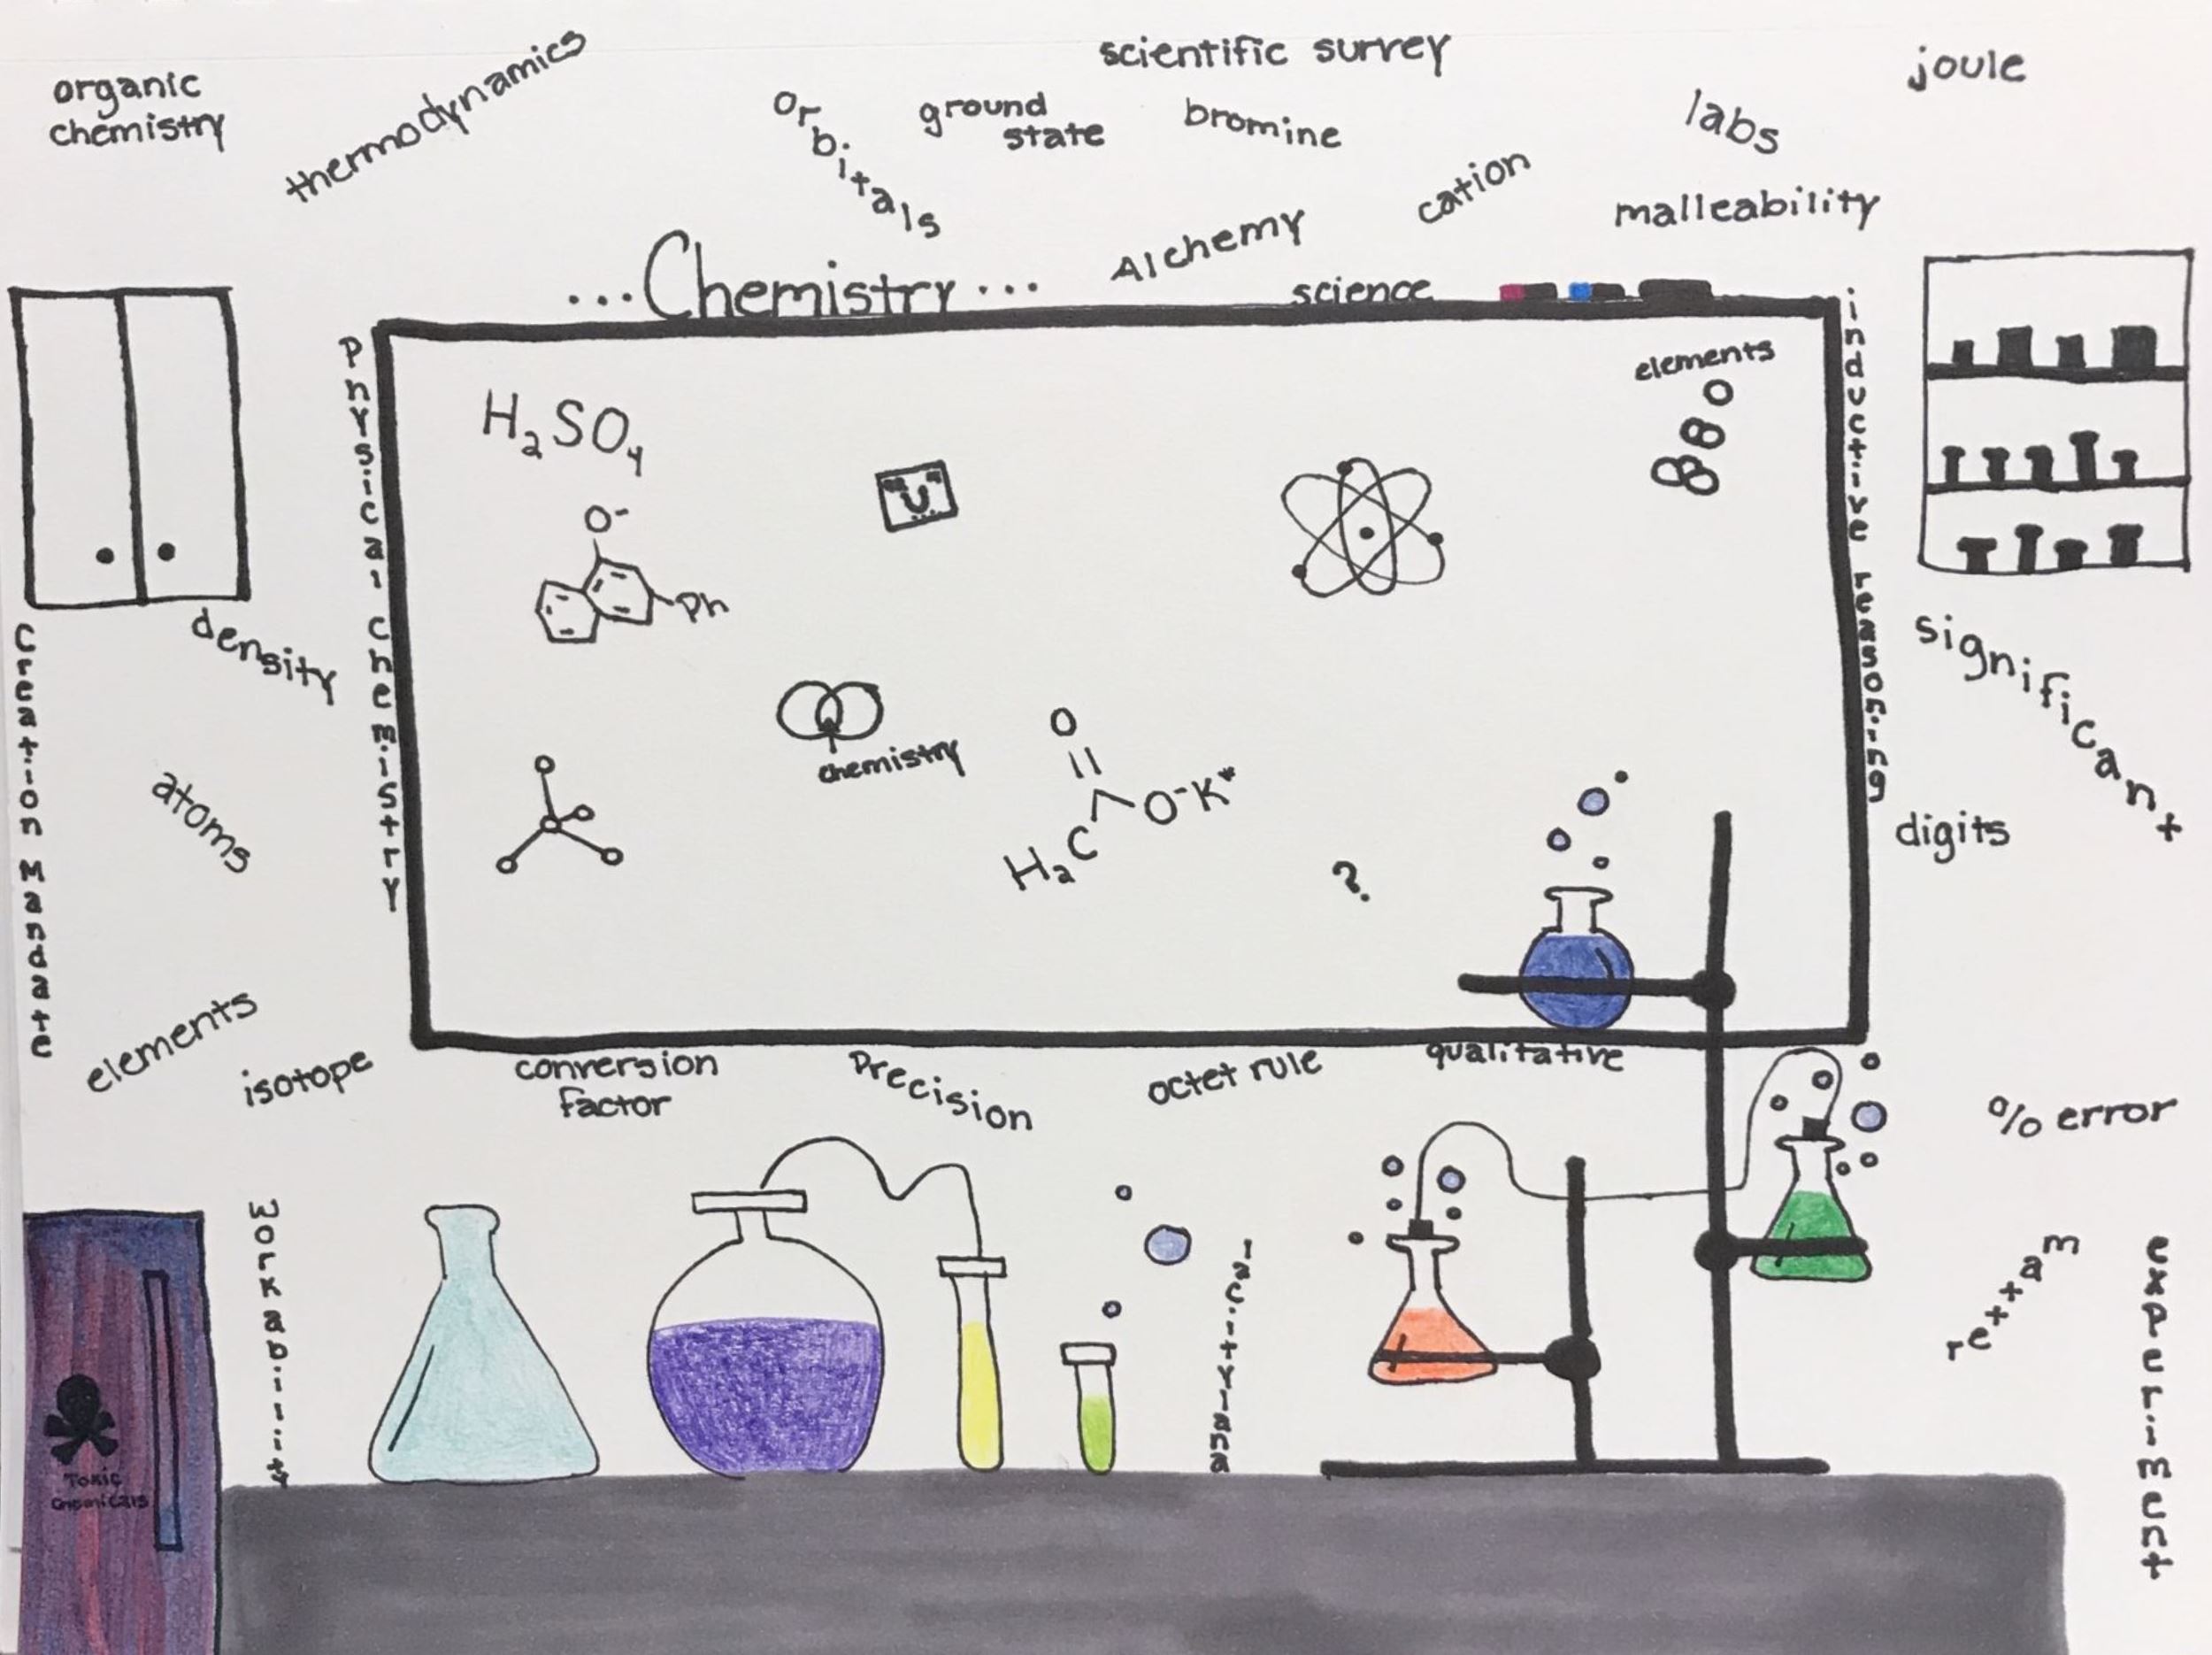 scientific survey
joule
organic
chemistry
thermodynamics
orbitals
ground
state
bromine
labs
cation
malleability
Alchemy
...Chemistry...
science
Physical chemistry
inductive reasoning
elements
H₂SO₄
U
O⁻
Ph
chemistry
O
||
O⁻K⁺
H₂C
?
density
Creation Mandate
atoms
significant
digits
elements
isotope
conversion
factor
Precision
octet rule
qualitative
% error
workability
matter
experiment
Toxic
Chemicals